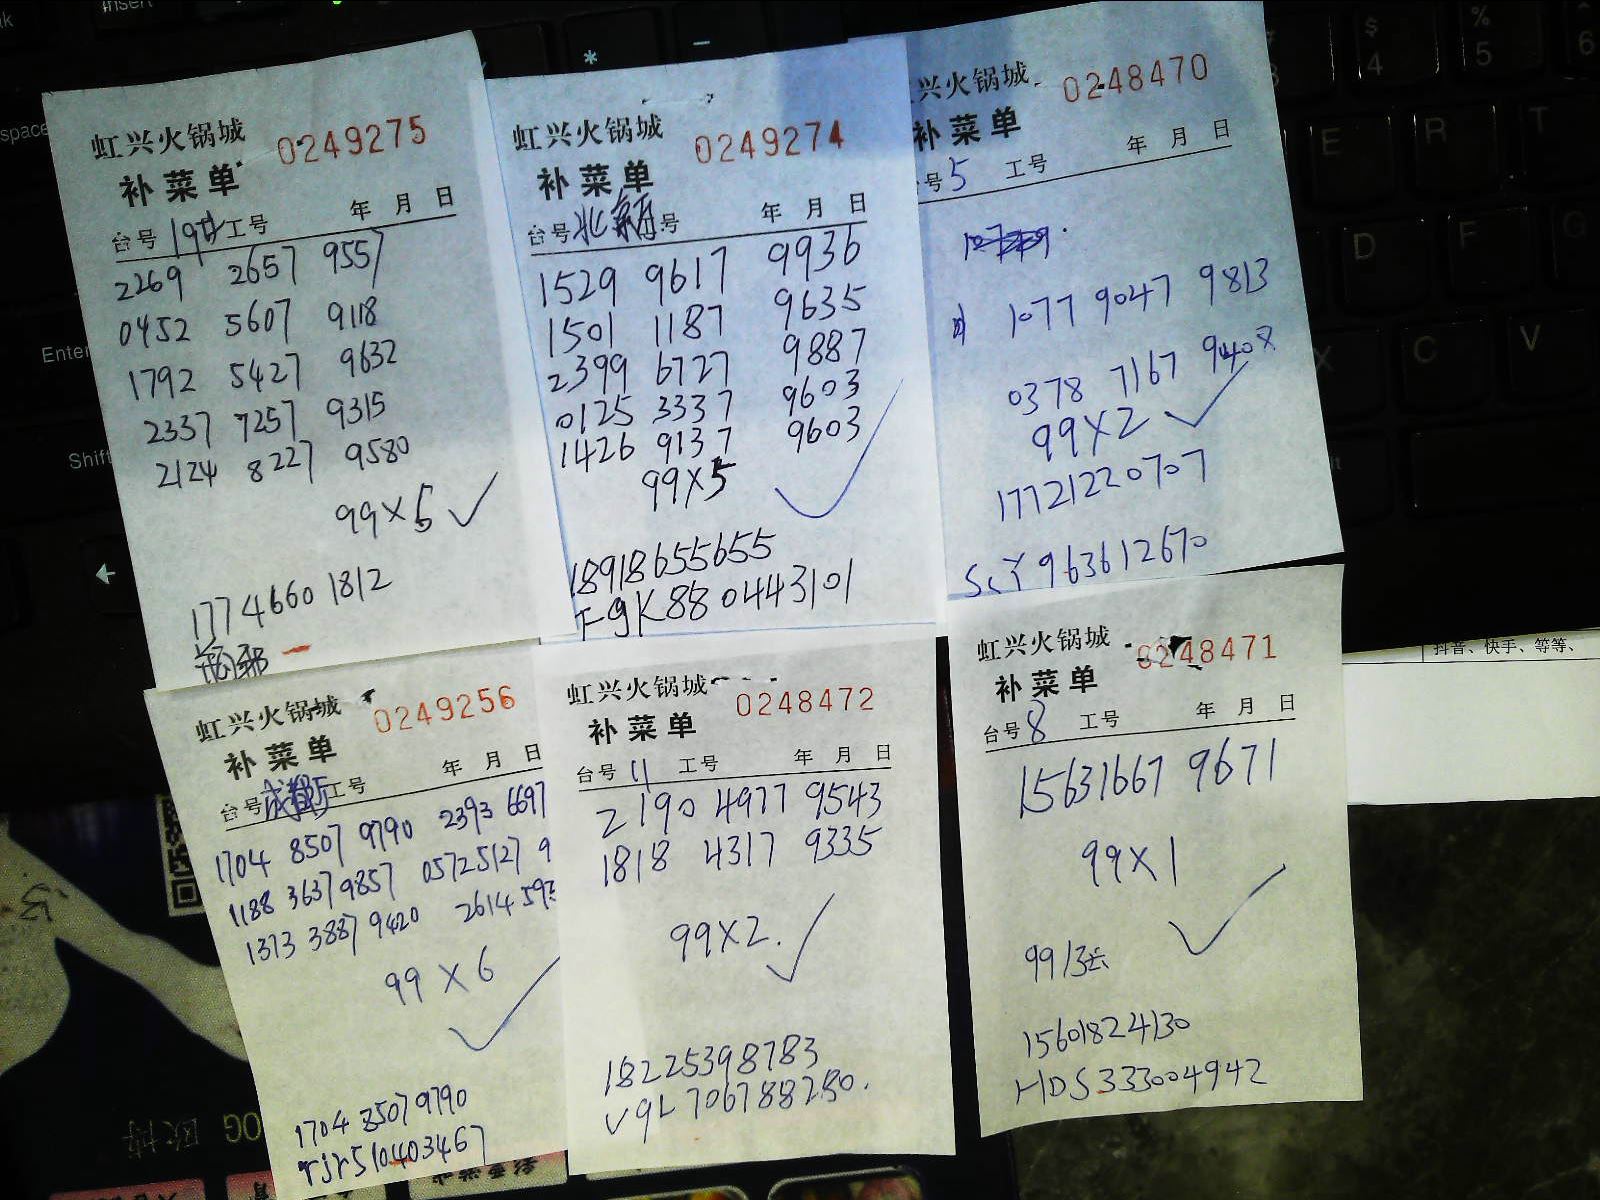 虹兴火锅城 0249275
补菜单
台号 工号 年 月 日
2269 2657 9557
0452 5607 9118
1792 5427 9632
2337 7257 9315
2124 8227 9580
99×5
17746601812
虹兴火锅城 0249274
补菜单
台号 号 年 月 日
1529 9617 9936
1501 1187 9635
2399 6727 9887
0125 3337 9603
1426 9137 9603
99×5
18918655655
F9K880443101
兴火锅城 0248470
补菜单
号 5 工号 年 月 日
1077 9047 9813
0378 7167
99×2
17721220707
ScY963612670
虹兴火锅城 0249256
补菜单
台号 成都 工号 年 月 日
1704 8507 9790 2393 6697
1188 3637 9857 0572 5127 9
1373 3887 9420 2614
99×6
1704 8507 9790
rjr510403467
虹兴火锅城 0248472
补菜单
台号 11 工号 年 月 日
2190 4977 9543
1818 4317 9335
99×2.
18225398783
V9L706788280.
虹兴火锅城 0248471
补菜单
台号 8 工号 年 月 日
15631667 9671
99×1
15601824130
HDS333004942
抖音、快手、等等、
Insert
space
Enter
Shift
* –
$ 4
% 5
6
E R T
D F G
X C V